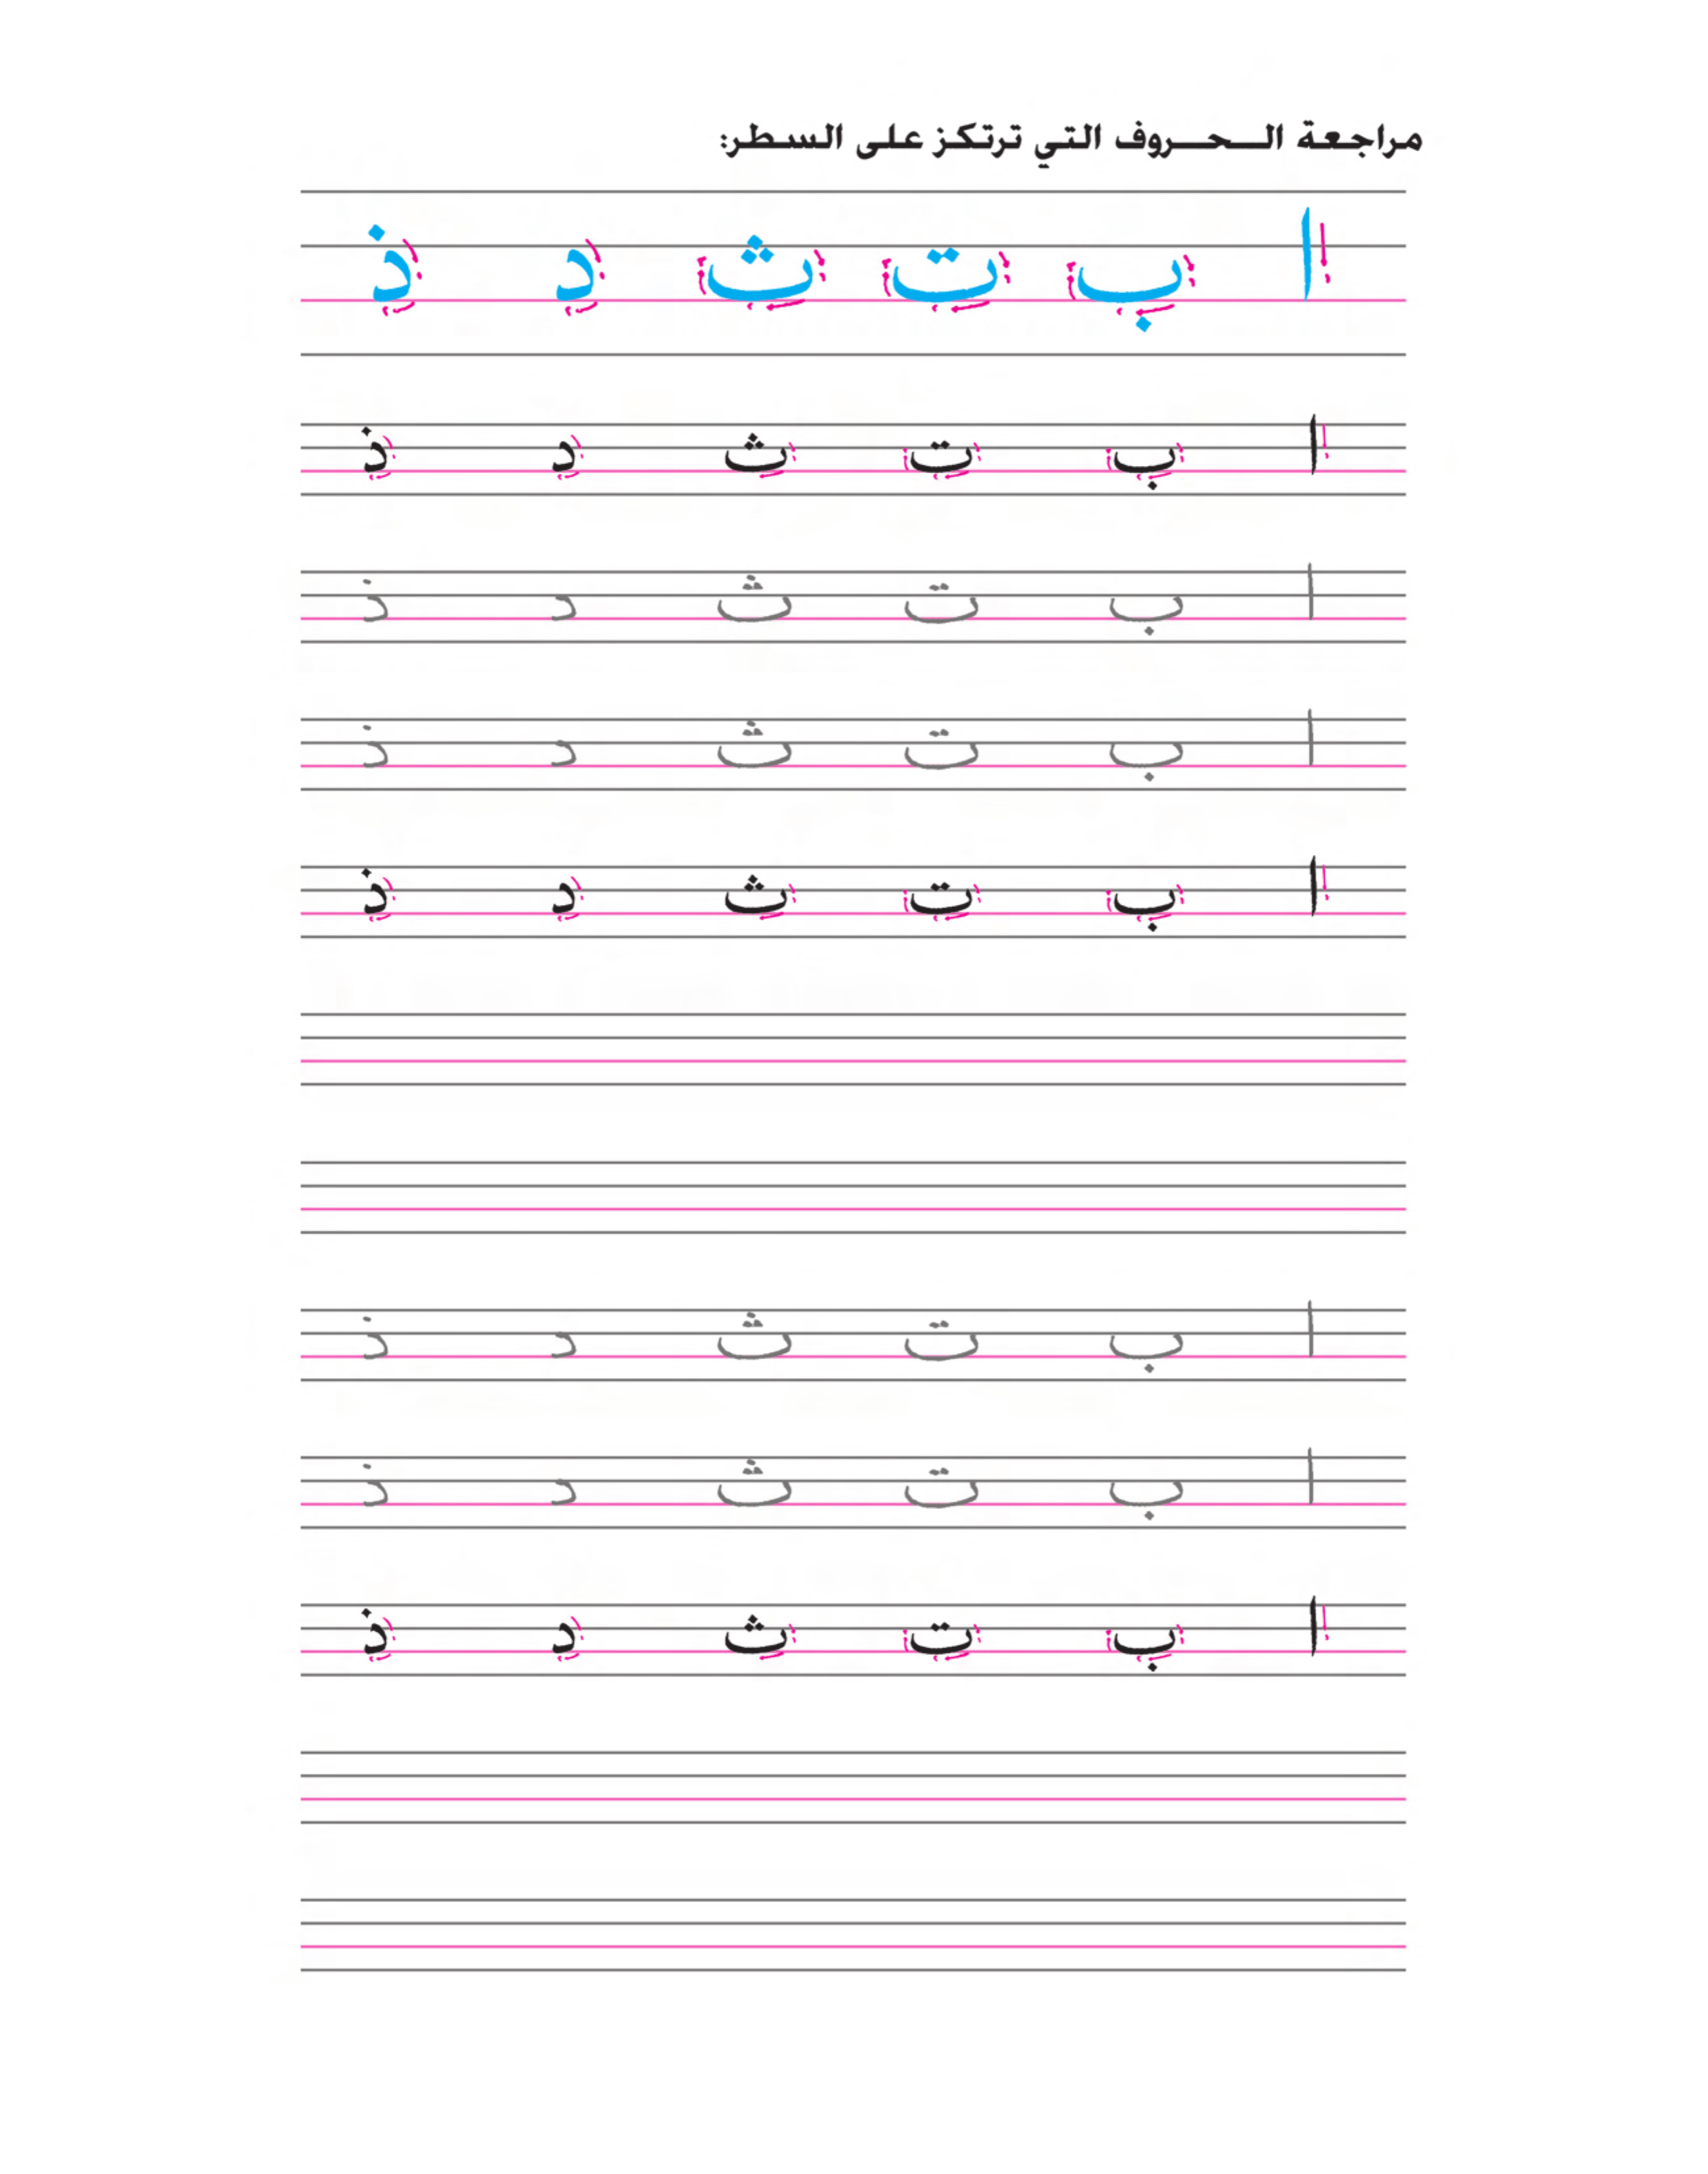 مراجعة الـحـروف التي ترتكز على السطر:
ا ب ت ث د ذ
ا ب ت ث د ذ
ا ب ت ث د ذ
ا ب ت ث د ذ
ا ب ت ث د ذ
ا ب ت ث د ذ
ا ب ت ث د ذ
ا ب ت ث د ذ